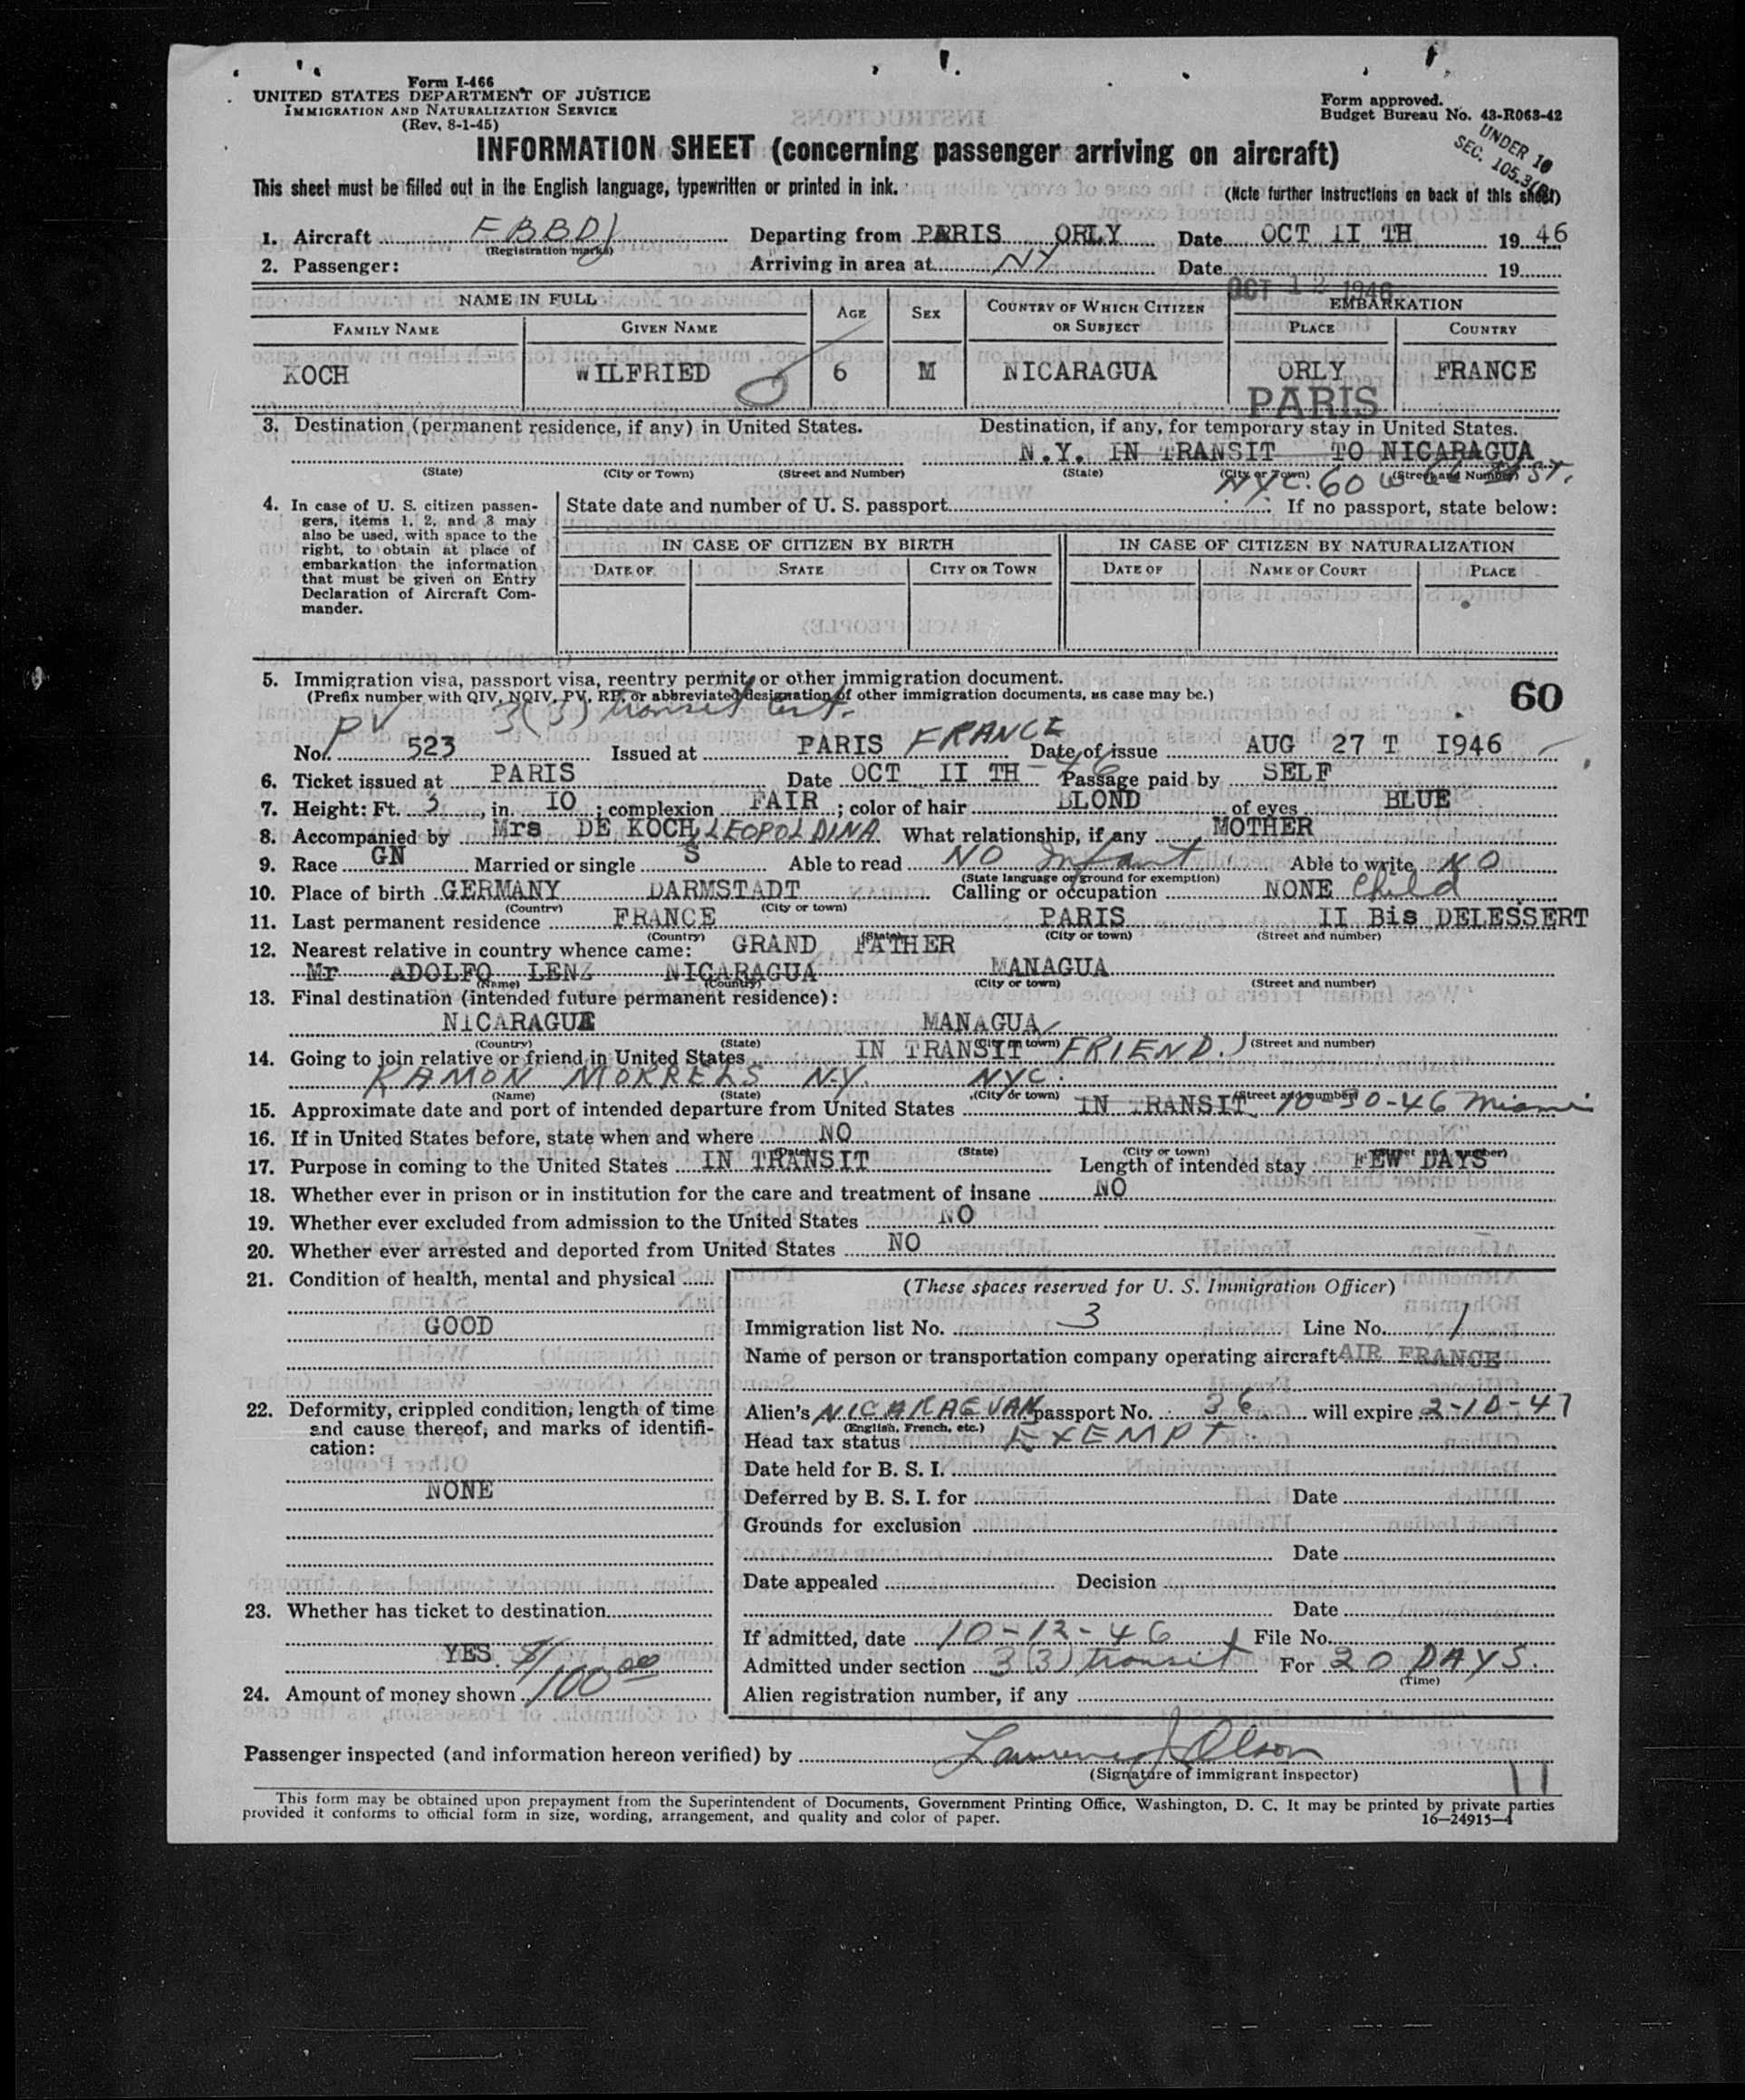 Form I-466
UNITED STATES DEPARTMENT OF JUSTICE
IMMIGRATION AND NATURALIZATION SERVICE
(Rev. 8-1-45)
Form approved.
Budget Bureau No. 43-R063-42
UNDER 16
SEC. 105.3
INFORMATION SHEET (concerning passenger arriving on aircraft)
This sheet must be filled out in the English language, typewritten or printed in ink.
(Note further instructions on back of this sheet)
1. Aircraft FBBDJ Departing from PARIS ORLY Date OCT II TH 1946
(Registration marks)
2. Passenger: Arriving in area at NY Date OCT 12 1946 19
NAME IN FULL AGE SEX COUNTRY OF WHICH CITIZEN OR SUBJECT EMBARKATION
FAMILY NAME GIVEN NAME PLACE COUNTRY
KOCH WILFRIED 6 M NICARAGUA ORLY FRANCE
PARIS
3. Destination (permanent residence, if any) in United States. Destination, if any, for temporary stay in United States.
N.Y. IN TRANSIT TO NICARAGUA
(State) (City or Town) (Street and Number) (State) (City or Town) (Street and Number)
NYC. 60 W ST.
4. In case of U. S. citizen passengers, items 1, 2, and 3 may also be used, with space to the right, to obtain at place of embarkation the information that must be given on Entry Declaration of Aircraft Commander.
State date and number of U. S. passport If no passport, state below:
IN CASE OF CITIZEN BY BIRTH IN CASE OF CITIZEN BY NATURALIZATION
DATE OF STATE CITY OR TOWN DATE OF NAME OF COURT PLACE
5. Immigration visa, passport visa, reentry permit, or other immigration document.
(Prefix number with QIV, NQIV, PV, RP, or abbreviated designation of other immigration documents, as case may be.)
60
PV 3(3) transit cert.
No. 523 Issued at PARIS FRANCE Date of issue AUG 27 T I946
6. Ticket issued at PARIS Date OCT II TH -46 Passage paid by SELF
7. Height: Ft. 3, in. IO; complexion FAIR; color of hair BLOND of eyes BLUE
8. Accompanied by Mrs DE KOCH, LEOPOLDINA What relationship, if any MOTHER
9. Race GN Married or single S Able to read NO Infant Able to write NO
(State language or ground for exemption)
10. Place of birth GERMANY DARMSTADT Calling or occupation NONE Child
(Country) (City or town)
11. Last permanent residence FRANCE PARIS II Bis DELESSERT
(Country) (State) (City or town) (Street and number)
12. Nearest relative in country whence came: GRAND FATHER
Mr ADOLFO LENZ NICARAGUA MANAGUA
(Name) (Country) (City or town) (Street and number)
13. Final destination (intended future permanent residence):
NICARAGUA MANAGUA
(Country) (State) (City or town) (Street and number)
14. Going to join relative or friend in United States IN TRANSIT FRIEND.)
RAMON MORRELS N.Y. NYC.
(Name) (State) (City or town) (Street and number)
15. Approximate date and port of intended departure from United States IN TRANSIT 10-30-46 Miami
16. If in United States before, state when and where NO
(Date) (State) (City or town) (Street and number)
17. Purpose in coming to the United States IN TRANSIT Length of intended stay FEW DAYS
18. Whether ever in prison or in institution for the care and treatment of insane NO
19. Whether ever excluded from admission to the United States NO
20. Whether ever arrested and deported from United States NO
21. Condition of health, mental and physical
GOOD
22. Deformity, crippled condition, length of time and cause thereof, and marks of identification:
NONE
23. Whether has ticket to destination
YES.
24. Amount of money shown $100.00
(These spaces reserved for U. S. Immigration Officer)
Immigration list No. 3 Line No. 1
Name of person or transportation company operating aircraft AIR FRANCE
Alien's NICARAGUAN passport No. 36 will expire 2-10-47
(English, French, etc.)
Head tax status EXEMPT
Date held for B. S. I.
Deferred by B. S. I. for Date
Grounds for exclusion
Date
Date appealed Decision
Date
If admitted, date 10-12-46 File No.
Admitted under section 3(3) transit For 20 DAYS.
(Time)
Alien registration number, if any
Passenger inspected (and information hereon verified) by Lawrence J Olson
(Signature of immigrant inspector)
11
This form may be obtained upon prepayment from the Superintendent of Documents, Government Printing Office, Washington, D. C. It may be printed by private parties
provided it conforms to official form in size, wording, arrangement, and quality and color of paper.
16—24915-4